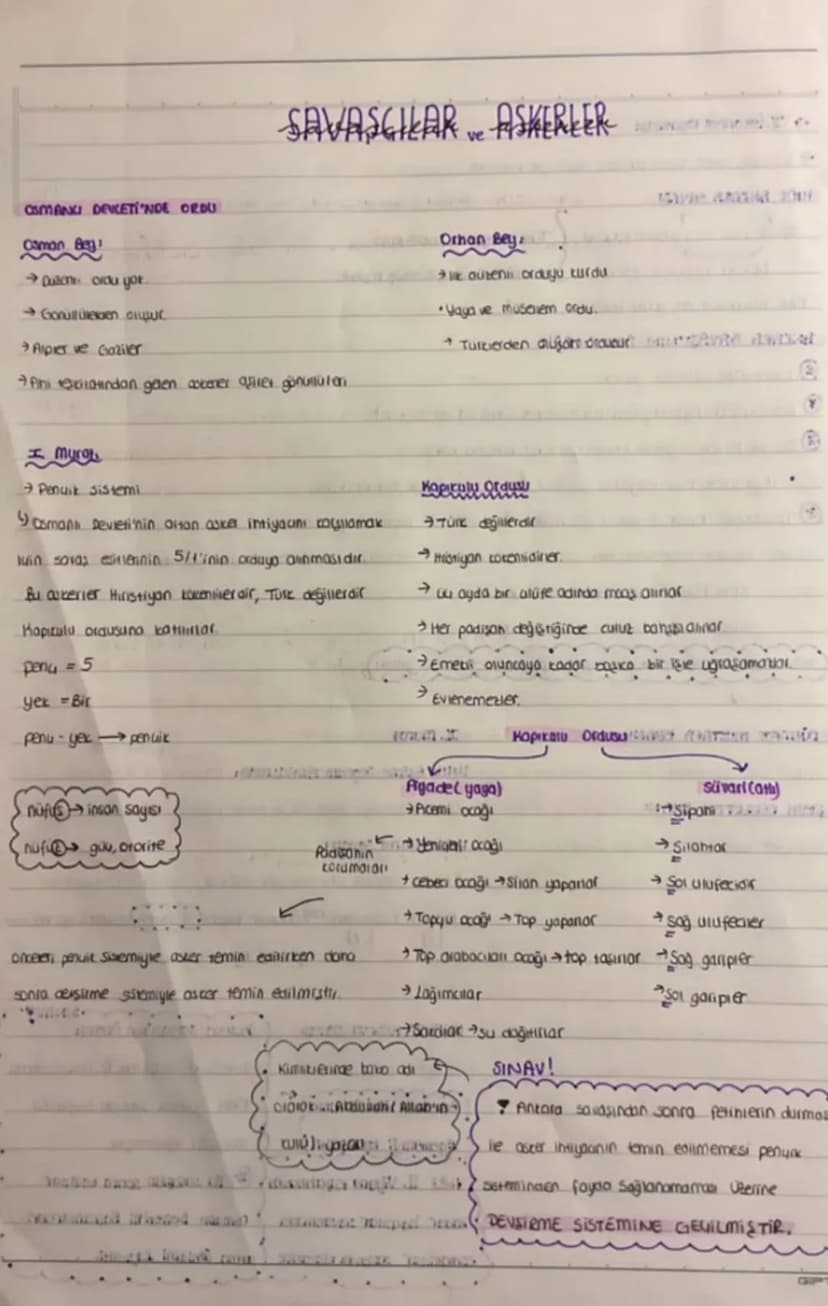 SAVAŞÇILAR ve ASKERLER
OSMANLI DEVLETİ'NDE ORDU
Osman Bey:
→ Düzenli ordu yok
→ Gönüllülerden oluşur.
→ Alpler ve Gaziler
→ Ahi teşkilatından gelen askerler gönüllüleri
Orhan Bey:
→ İlk düzenli orduyu kurdu
• Yaya ve müsellem ordu.
→ Türklerden
I. Murat
→ Pençik sistemi
↳ Osmanlı Devleti'nin artan asker ihtiyacını karşılamak
için savaş esirlerinin 5/1'inin orduya alınmasıdır.
Bu askerler Hıristiyan kökenlilerdir, Türk değillerdir
Kapıkulu ordusuna katılırlar
penç = 5
yek = Bir
penç - yek → pençik
Kapıkulu Ordusu
→ Türk değillerdir
→ Hristiyan kökenlidirler.
→ Üç ayda bir ulufe adında maaş alırlar
→ Her padişah değiştiğinde culüz bahşişi alırlar
→ Emekli oluncaya kadar başka bir işle uğraşamazlar.
→ Evlenemezler.
Kapıkulu Ordusu
Piyade (yaya)
→ Acemi ocağı
→ Yeniçeri ocağı
Padişahın
korumaları
→ Cebeci ocağı → Silah yapanlar
→ Topçu ocağı → Top yapanlar
→ Top arabacıları ocağı → top taşırlar
→ Lağımcılar
→ Sakalar → su dağıtırlar
Süvari (atlı)
→ Sipahi
→ Silahtar
→ Sol ulufeciler
→ Sağ ulufeciler
→ Sağ garipler
→ Sol garipler
nüfus → insan sayısı
nüfuz → güç, otorite
önceleri pençik sistemiyle asker temin edilirken daha
sonra devşirme sistemiyle asker temin edilmiştir.
Kimliklerinde baba adı
olarak Abdullah (Allah'ın
kulu) yazar
SINAV!
Ankara savaşından sonra fetihlerin durması
ile asker ihtiyacının temin edilmemesi pençik
sisteminden fayda sağlanamaması üzerine
DEVŞİRME SİSTEMİNE GEÇİLMİŞTİR.